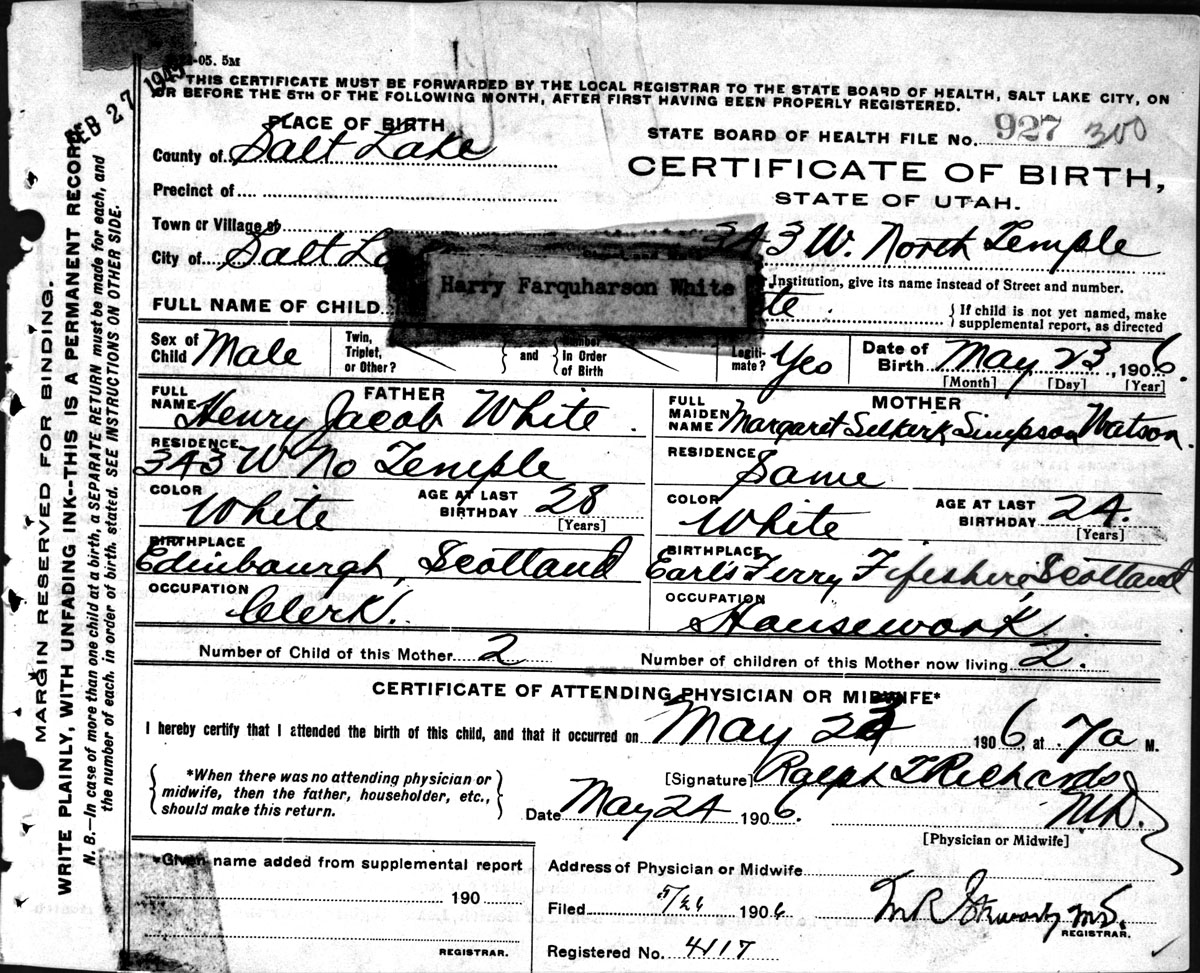 -05. 5M
THIS CERTIFICATE MUST BE FORWARDED BY THE LOCAL REGISTRAR TO THE STATE BOARD OF HEALTH, SALT LAKE CITY, ON
OR BEFORE THE 5TH OF THE FOLLOWING MONTH, AFTER FIRST HAVING BEEN PROPERLY REGISTERED.
FEB 27 194
PLACE OF BIRTH
STATE BOARD OF HEALTH FILE No. 927 300
County of Salt Lake
CERTIFICATE OF BIRTH,
Precinct of
STATE OF UTAH.
Town or Village of
343 W. North Temple
City of Salt La
Harry Farquharson White
Institution, give its name instead of Street and number.
FULL NAME OF CHILD
te.
{ If child is not yet named, make
supplemental report, as directed
Sex of Child Male
Twin, Triplet, or Other?
and
Number In Order of Birth
Legiti-mate? Yes
Date of Birth May 23, 1906.
[Month] [Day] [Year]
FATHER
FULL NAME Henry Jacob White.
RESIDENCE
343 W No Temple
COLOR White
AGE AT LAST BIRTHDAY 28
[Years]
BIRTHPLACE
Edinbourgh, Scotland
OCCUPATION
Clerk.
MOTHER
FULL MAIDEN NAME Margaret Selkirk Simpson Watson.
RESIDENCE Same
COLOR White
AGE AT LAST BIRTHDAY 24.
[Years]
BIRTHPLACE
Earl's Ferry Fifeshire Scotland
OCCUPATION
Housework
Number of Child of this Mother 2
Number of children of this Mother now living 2.
CERTIFICATE OF ATTENDING PHYSICIAN OR MIDWIFE*
I hereby certify that I attended the birth of this child, and that it occurred on May 23 1906, at 7a M.
{ *When there was no attending physician or
midwife, then the father, householder, etc.,
should make this return. }
[Signature] Ralph T Richards
M.D.
Date May 24 1906.
[Physician or Midwife]
*Given name added from supplemental report
190
REGISTRAR.
Address of Physician or Midwife
Filed 5/26 1906
M.D.
REGISTRAR.
Registered No. 4117
MARGIN RESERVED FOR BINDING.
WRITE PLAINLY, WITH UNFADING INK--THIS IS A PERMANENT RECORD.
N. B.—In case of more than one child at a birth, a SEPARATE RETURN must be made for each, and
the number of each, in order of birth, stated. SEE INSTRUCTIONS ON OTHER SIDE.